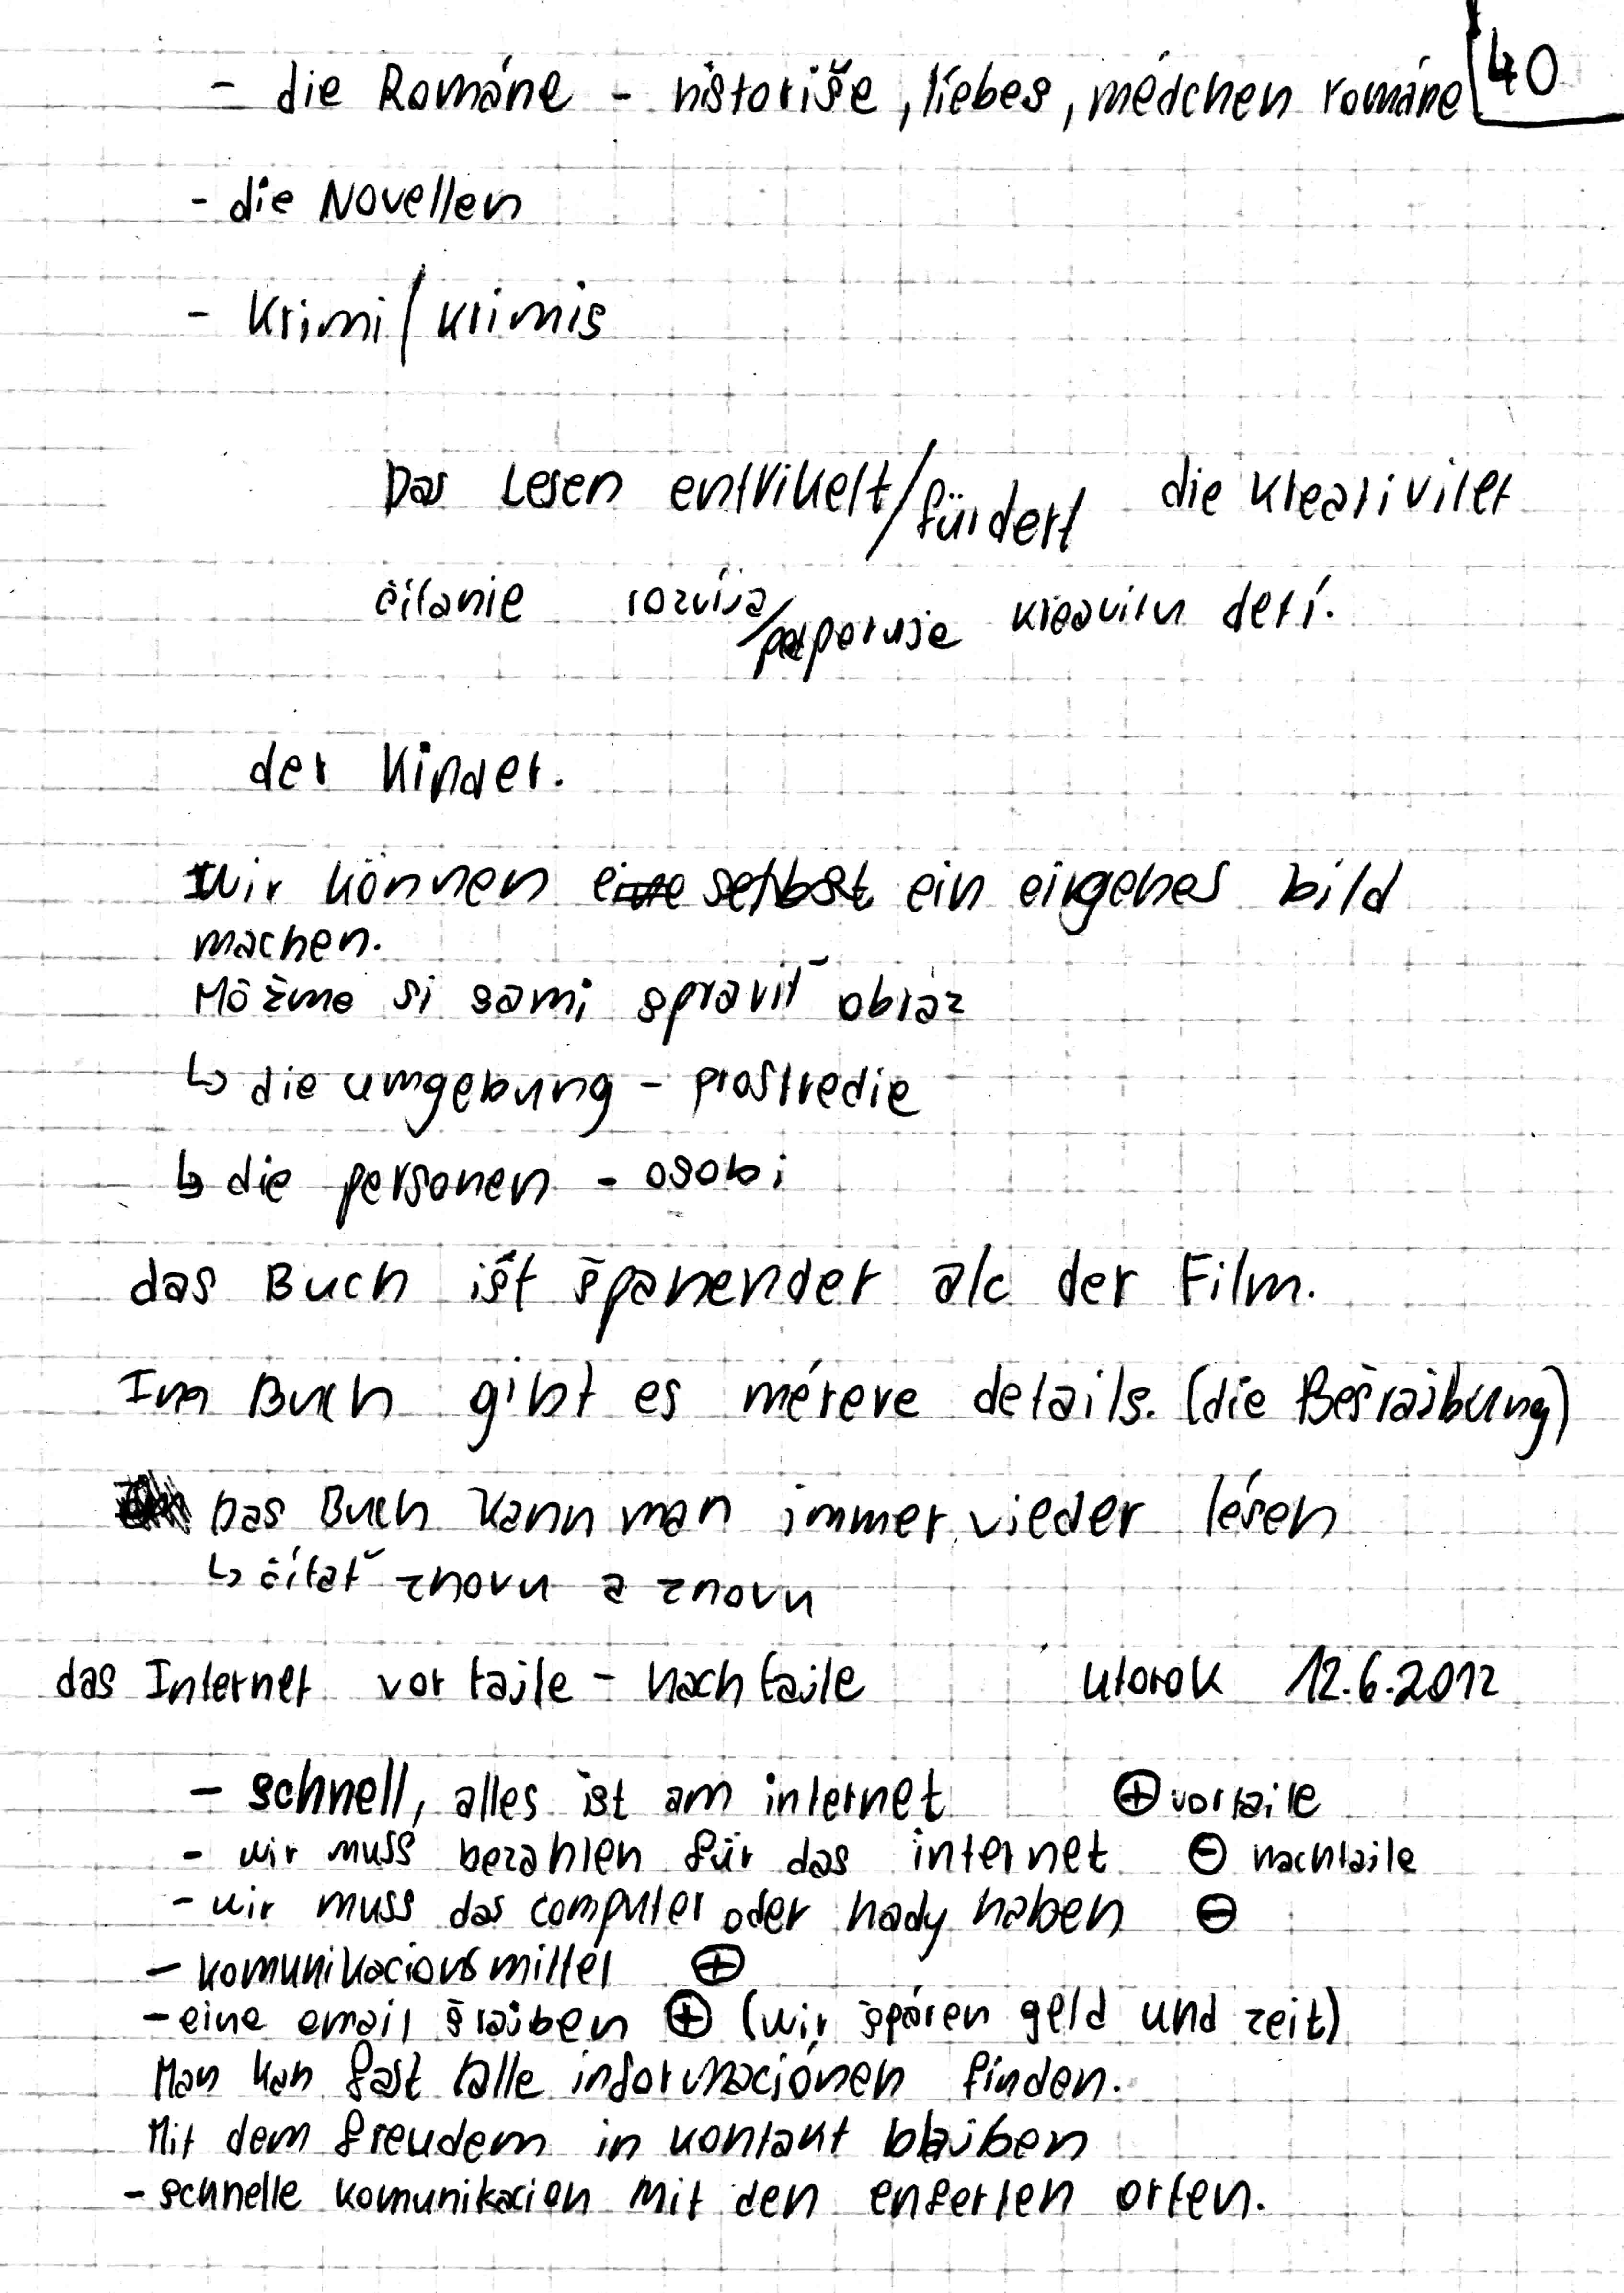 40
- die Románe - historiše, liebes, médchen románe
- die Novellen
- Krimi/krimis
Das Lesen entvikelt/fürdert die kreativitet
čítanie rozvíja/podporuje kreavitu detí.
der Kinder.
Wir können ein eigenes bild
machen.
Môžme si sami spraviť obraz
↳ die umgebung - prostredie
↳ die personen - osobi
das Buch išt španender alc der Film.
Im Buch gibt es mérere details. (die Bešrajbung)
Das Buch kann man immer vieder lésen
↳ čítať znovu a znovu
das Internet vortajle - nachtajle utorok 12.6.2012
- schnell, alles ist am internet ⊕ vortajle
- wir muss bezahlen für das internet ⊖ nachtajle
- wir muss das computer oder hady haben ⊖
- komunikacionsmittel ⊕
- eine email šrajben ⊕ (wir špáren geld und zeit)
Man kan fast alle informaciónen finden.
Mit dem freudem in kontakt blajben
- schnelle komunikacion mit den enferten orten.